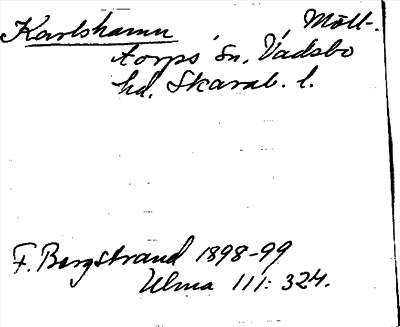 Karlshamn Mölt-
torps sn, Vadsbo
hd. Skarab. l.
F. Bergstrand 1898-99
Ulma 111: 324.